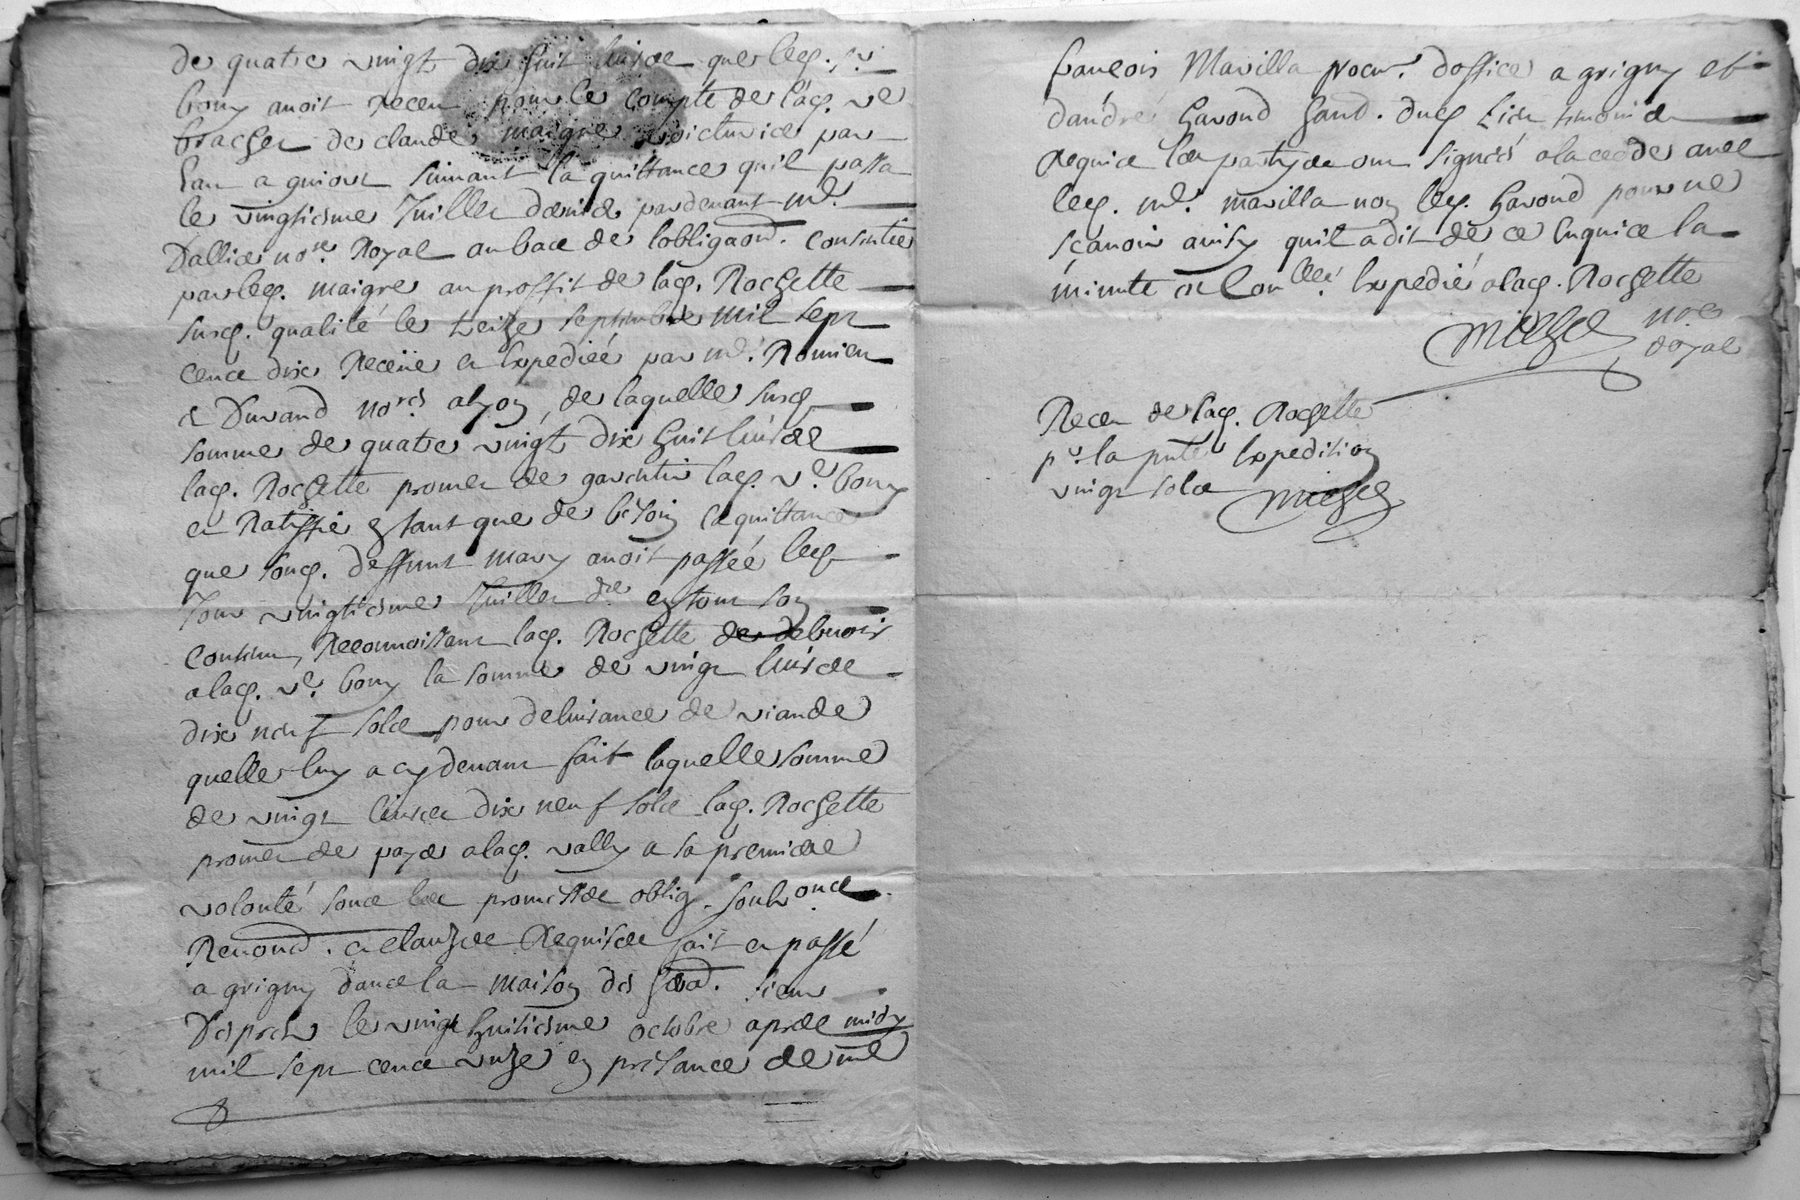 de quatre vingt dix huit livres que led. sr
bony avoit receu pour le compte de lad. ve
bracher de claude maigre voicturier par
eau a guiort suivant la quittance quil passa
le vingtiesme Juillet dernier pardevant me.
Dallier nore. Royal au bace de lobligaon. consentie
par led. maigre au proffit de lad. Rochette
susd. qualité le treize septembre mil sept
cence dix Receüe et Expediéé par me. Romieu
et Durand nores. a lyon, de laquelle susd
somme de quatre vingt dix huit livres
lad. Rochette promet de garentir lad. ve. bony
et Ratiffie en tant que de besoin la quittance
que sond. deffunt mary avoit passéé led
Jour vingtiesme Juillet der en tout son
contenu, Reconnoissant lad. Rochette de debvoir
a lad. ve. bony la somme de vingt livres
dix neuf solz pour delivrance de viande
quelle luy a cy devant fait laquelle somme
de vingt livres dix neuf solz lad. Rochette
promet de payer a lad. vally a sa premiere
volonté souce les promesses oblig. soub.once
Renond. et clauzes Requises fait et passé
a grigny dance la maison des herd. sieur
Desprets le vingt huitiesme octobre apres midy
mil sept cence unze en presance de me
francois Mavilla procur. doffice a grigny et
dandré havond dud lieu temoins
Requis les partyes ont signés a la cedde avec
led. me. mavilla non led. havond pour ne
scavoir ainsy quil a dit de ce Enquis la
minute et Conllée. Expedié a lad. Rochette
nore
Royal
Receu de lad. Rochette
pr. la pnte Expedition
vingt solz